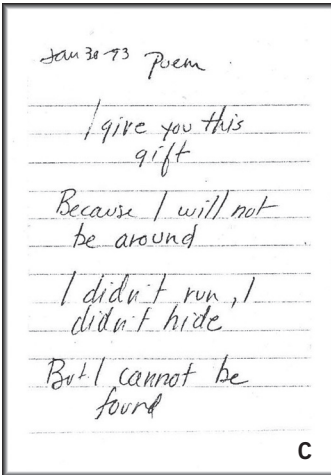 Jan 30 93 Poem
I give you this
gift
Because I will not
be around
I didn't run, I
didn't hide
But I cannot be
found
C